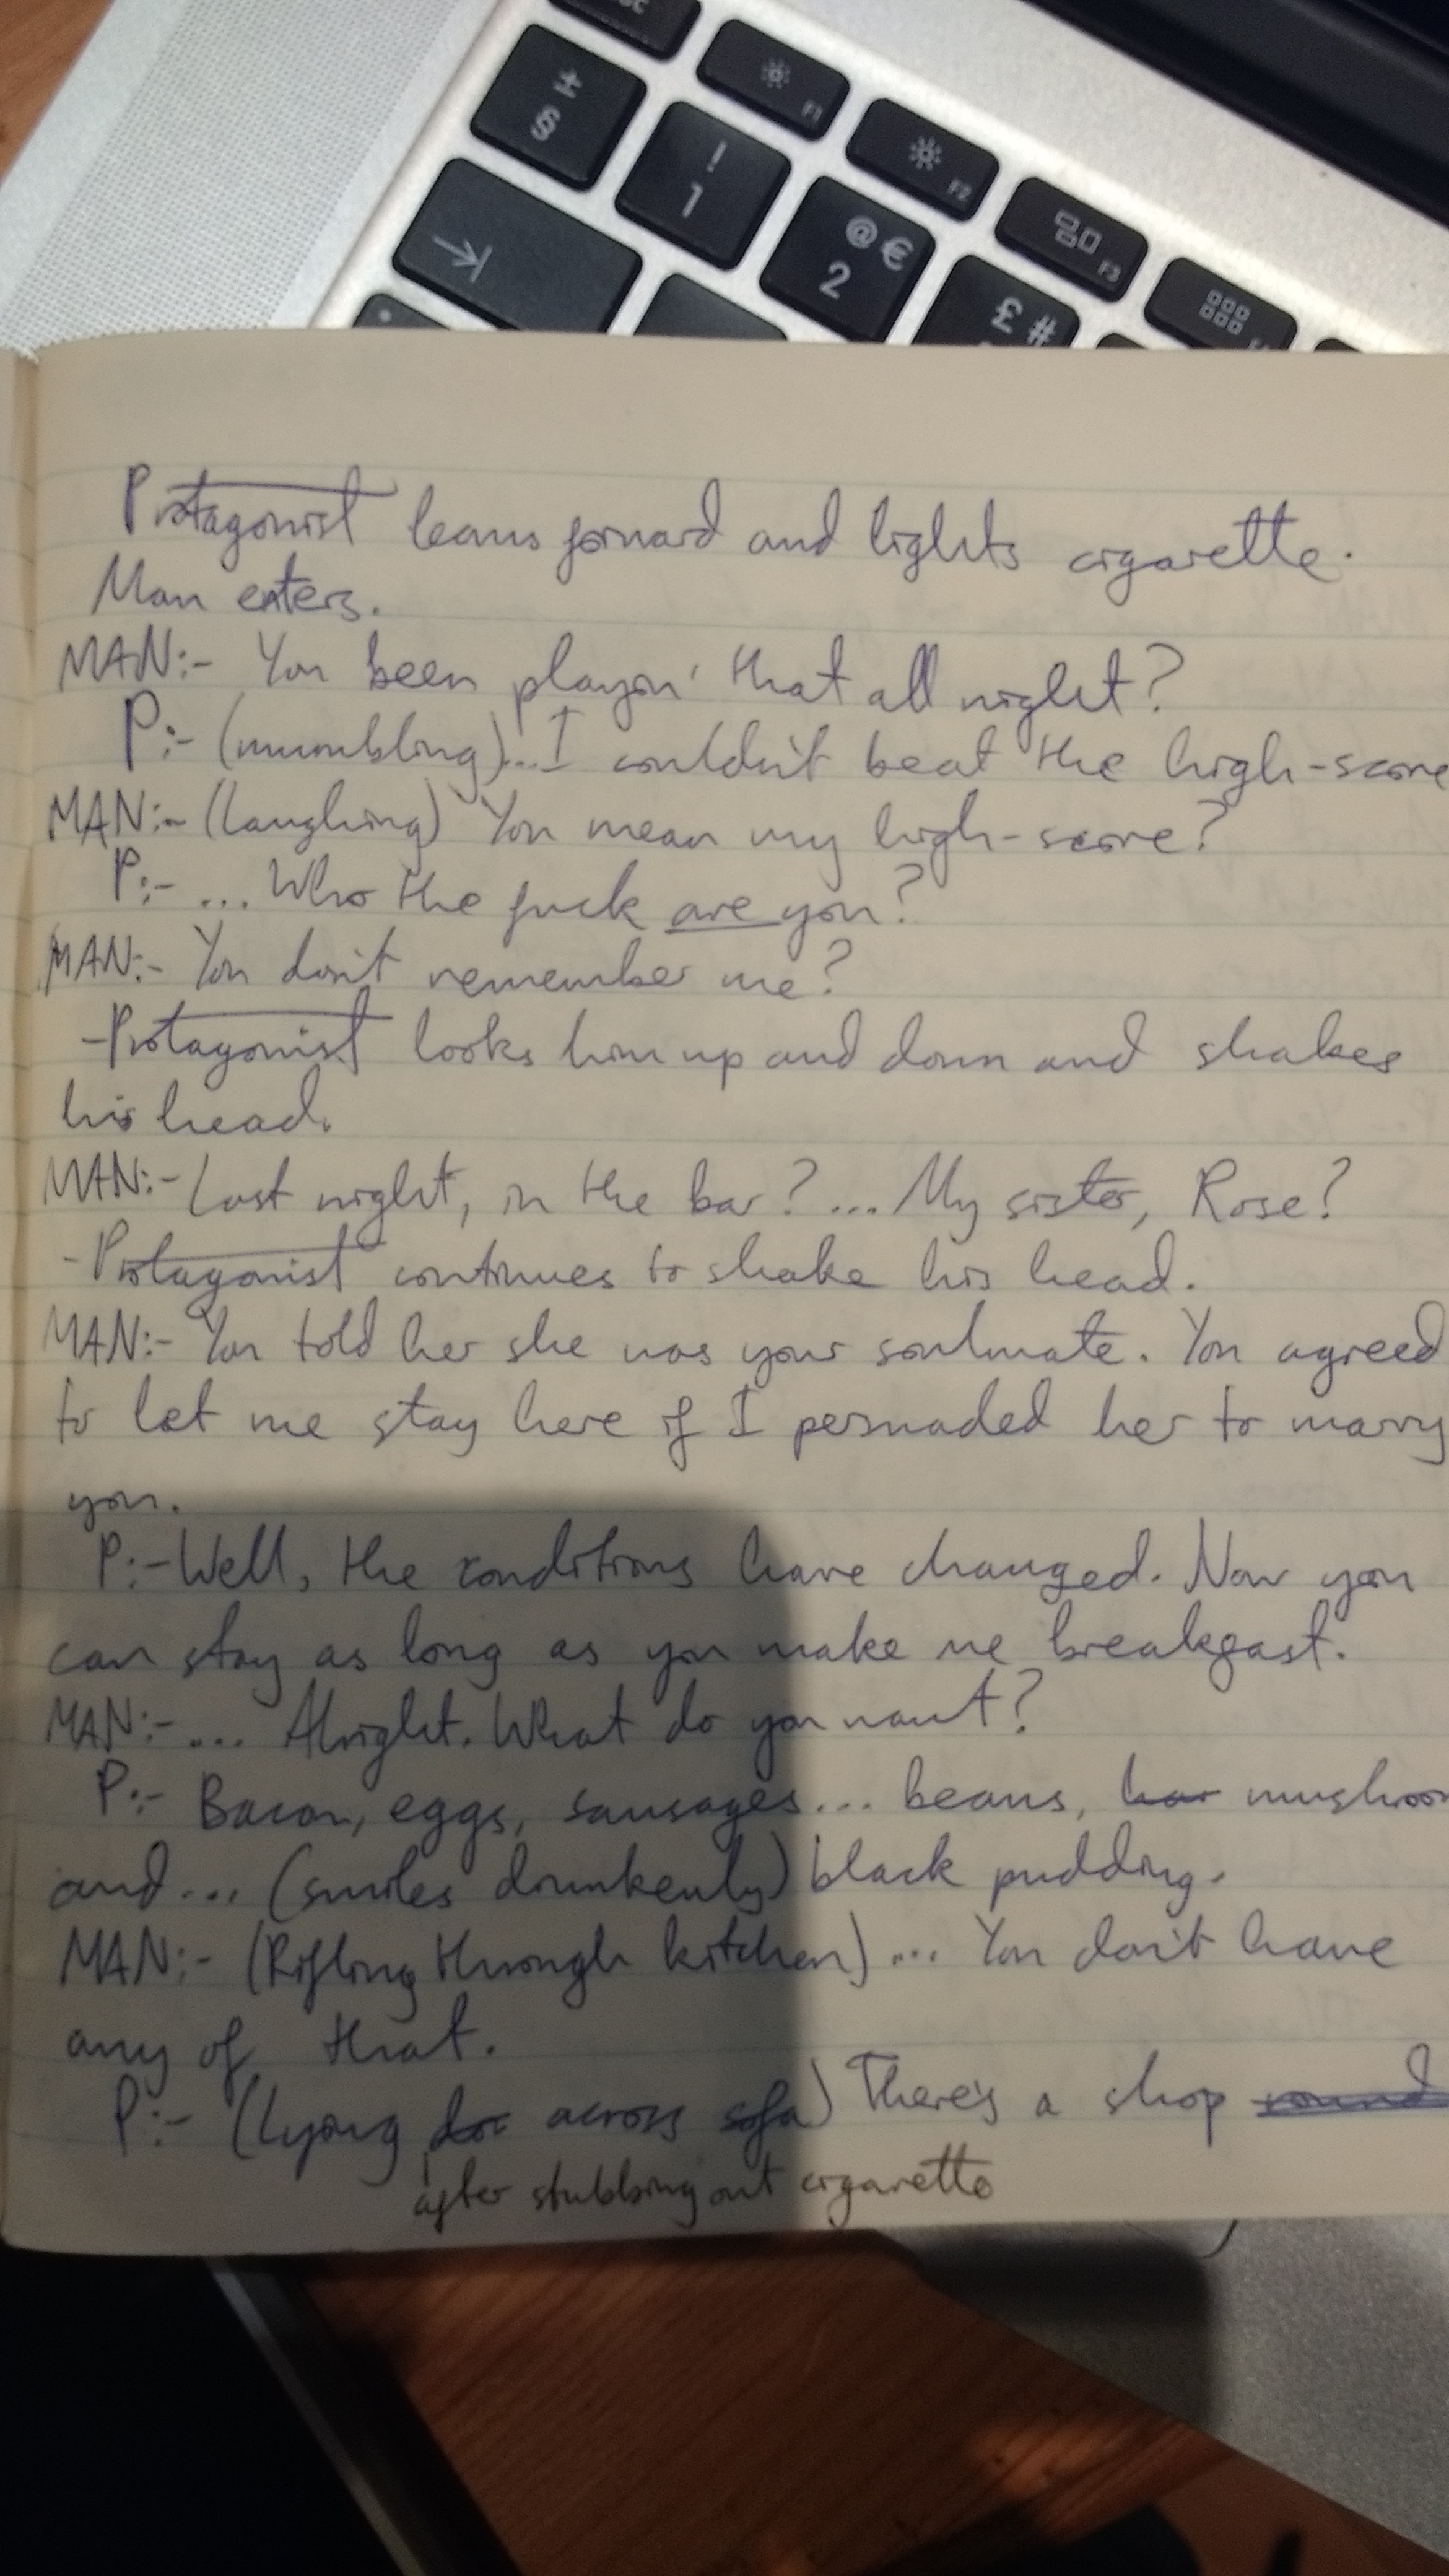 esc
±
§
!
1
F1
@ €
2
F2
£ #
F3
Protagonist leans forward and lights cigarette.
Man enters.
MAN:- You been playin' that all night?
P:- (mumbling)...I couldn't beat the high-score
MAN:- (laughing) You mean my high-score?
P:- ... Who the fuck are you?
MAN:- You don't remember me?
-Protagonist looks him up and down and shakes
his head.
MAN:- Last night, in the bar?... My sister, Rose?
-Protagonist continues to shake his head.
MAN:- You told her she was your soulmate. You agreed
to let me stay here if I persuaded her to marry
you.
P:- Well, the conditions have changed. Now you
can stay as long as you make me breakfast.
MAN:- ... Alright. What do you want?
P:- Bacon, eggs, sausages... beans, mushroom
and... (smiles drunkenly) black pudding.
MAN:- (Rifling through kitchen)... You don't have
any of that.
P:- (Lying across sofa) There's a shop round
after stubbing out cigarette